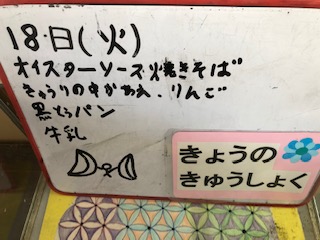 18日(火)
オイスターソース焼きそば
きゅうりの中か あえ、りんご
黒とうパン
牛乳
きょうの
きゅうしょく